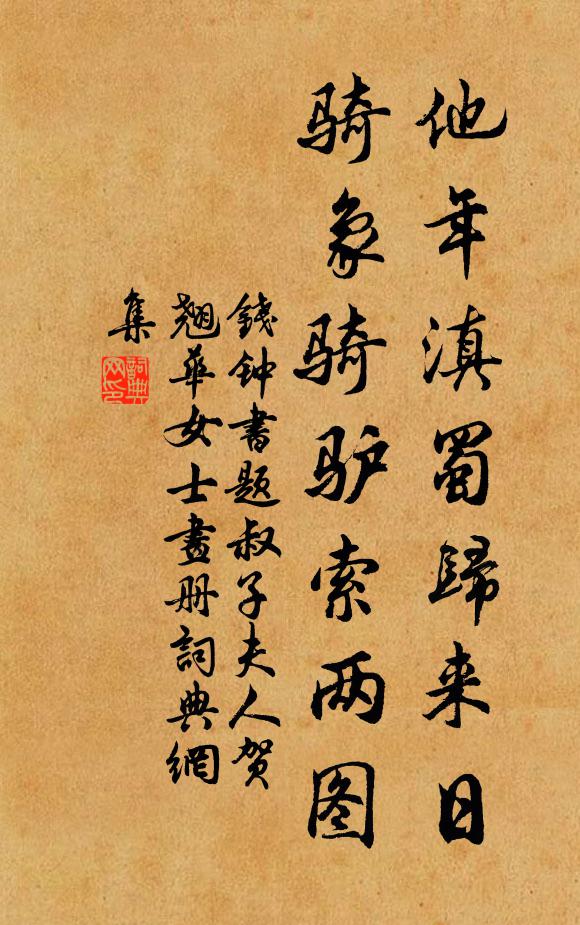 他年滇蜀歸来日
骑象骑驴索两图
錢钟書題叔子夫人贺
翘華女士畫册詞典網
集
詞典
网印